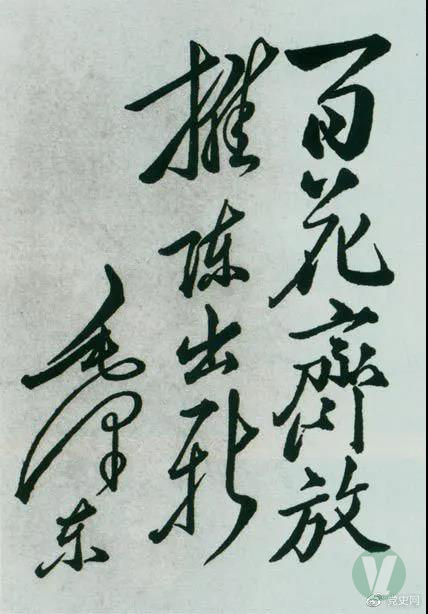 百花齊放
推陈出新
毛泽东
y
@党史网